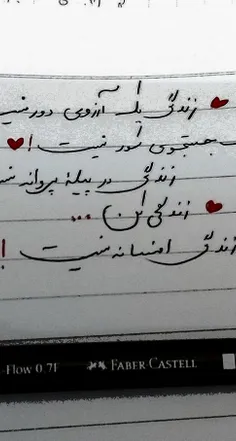 زندگی یک آرزوی دور نیست
جستجوی کور نیست!
زندگی در پیلهٔ پروانه
زندگی کن ...
زندگی افسانه نیست!
Flow 0.7F FABER CASTELL